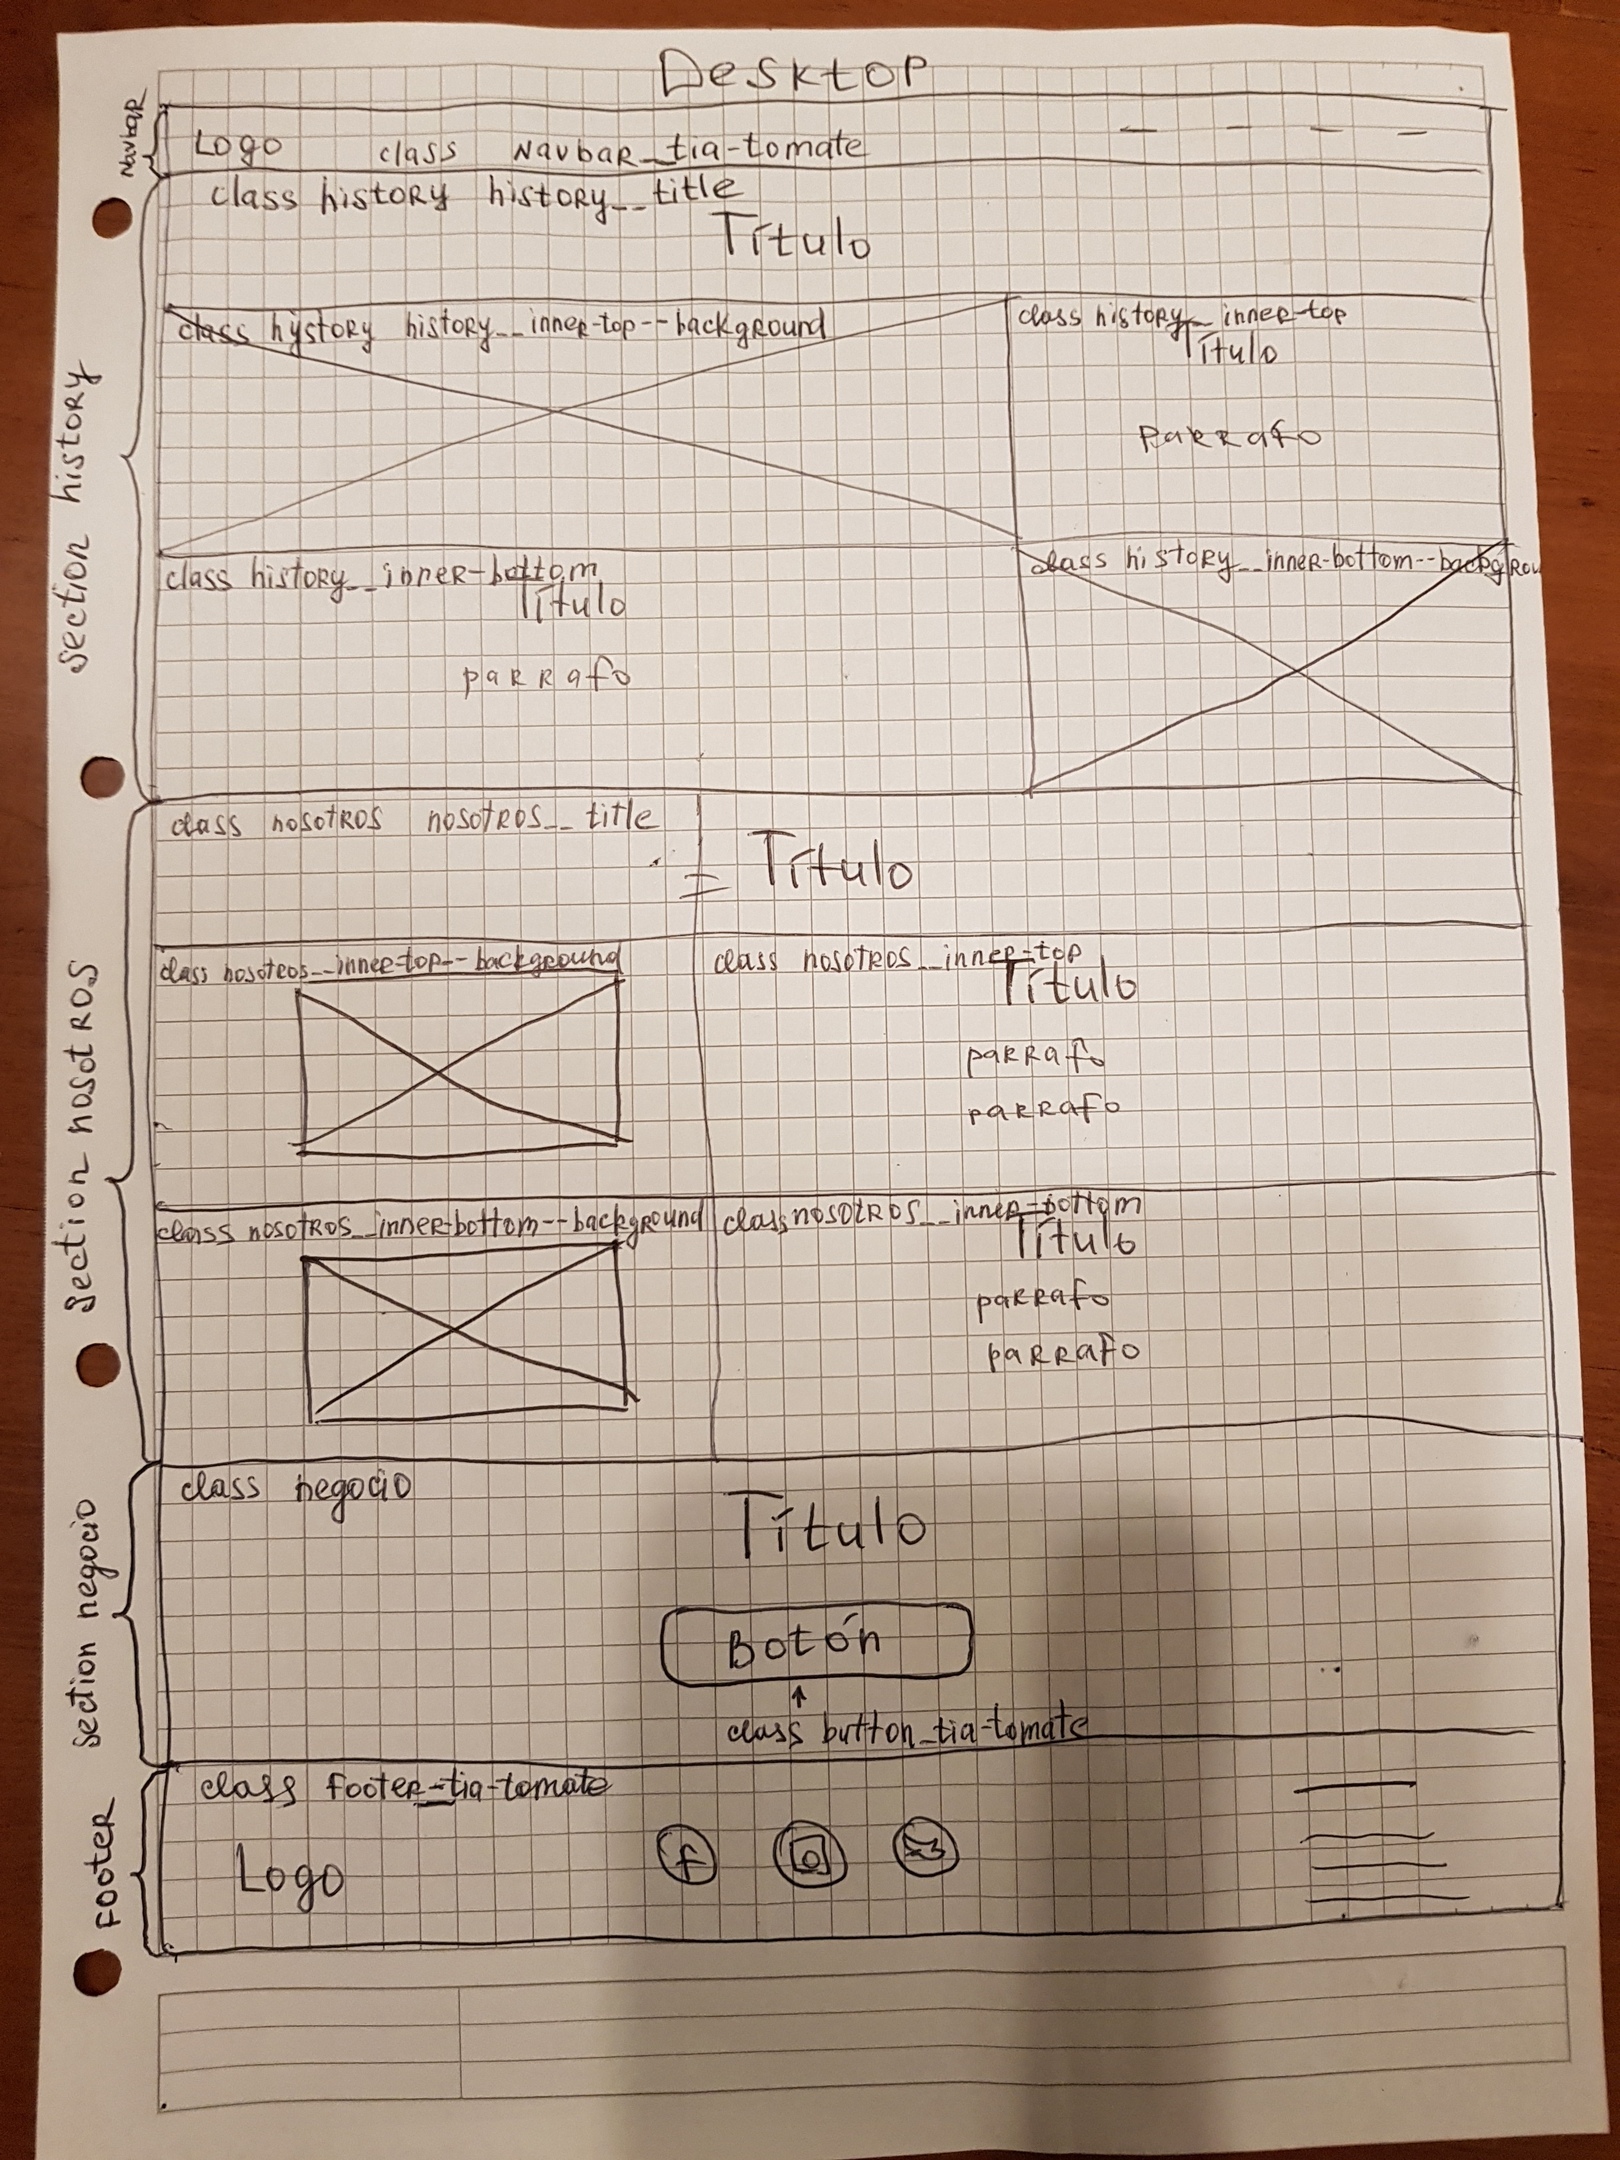 Desktop
Navbar
Logo class Navbar_tia-tomate
section history
class history history__title
Título
class hystory history__inner-top--background
class history__inner-top
Título
parrafo
class history__inner-bottom
Título
parrafo
class history__inner-bottom--backgrou
section nosotros
class nosotros nosotros__title
Título
class nosotros__inner-top--background
class nosotros__inner-top
Título
parrafo
parrafo
class nosotros__inner-bottom--background
class nosotros__inner-bottom
Título
parrafo
parrafo
section negocio
class negocio
Título
Botón
class button_tia-tomate
footer
class footer_tia-tomate
Logo
f